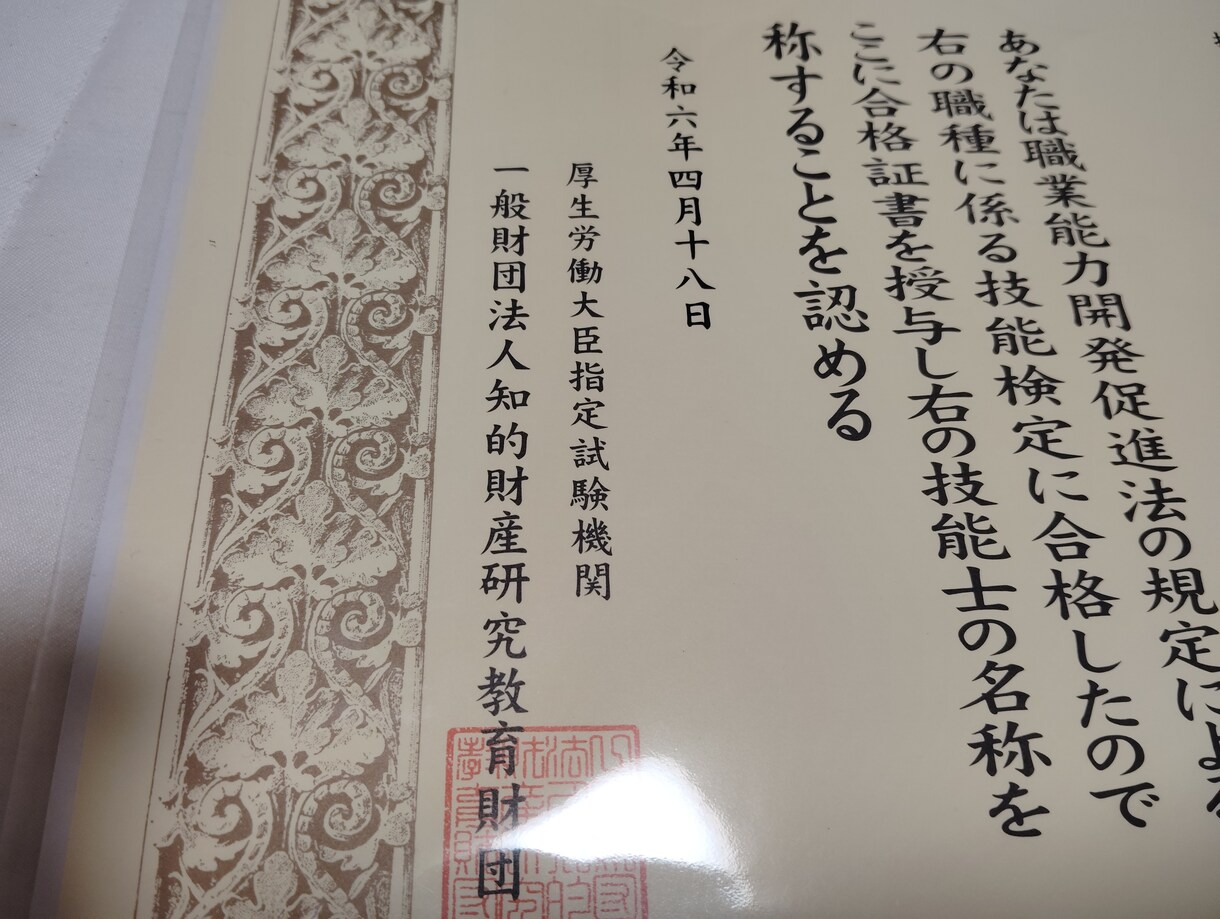 あなたは職業能力開発促進法の規定による
右の職種に係る技能検定に合格したので
ここに合格証書を授与し右の技能士の名称を
称することを認める
令和六年四月十八日
厚生労働大臣指定試験機関
一般財団法人知的財産研究教育財団